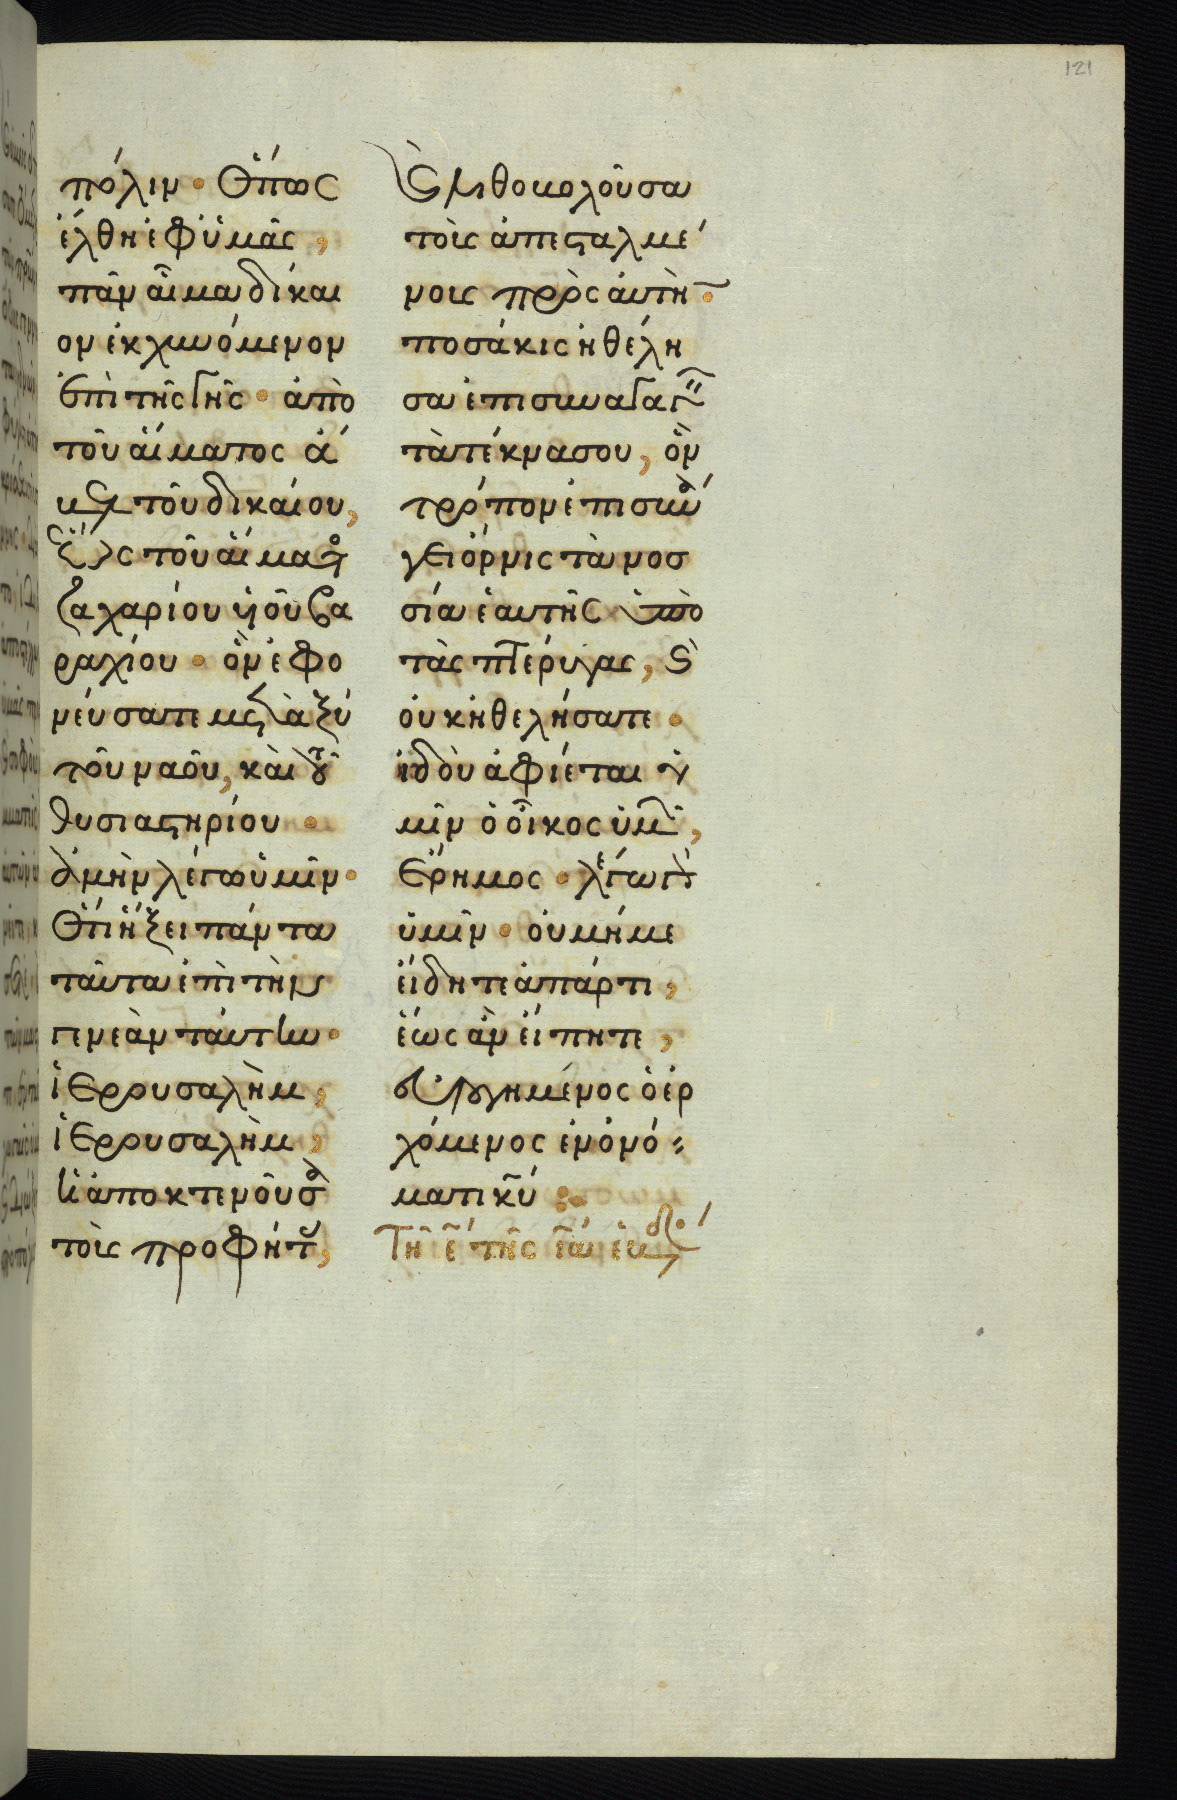 121
πόλιν · ὅπως
ἔλθη ἐφ ὑμᾶς,
πᾶν αἷμα δίκαι
ον ἐκχυνόμενον
ἐπὶ τῆς γῆς · ἀπὸ
τοῦ αἵματος ἄ
βελ τοῦ δικαίου,
ἕως τοῦ αἵματο
ζαχαρίου υἱοῦ βα
ραχίου · ὃν ἐφο
νεύσατε μεταξύ
τοῦ ναοῦ, καὶ τοῦ
θυσιαστηρίου ·
ἀμὴν λέγω ὑμῖν ·
ὅτι ἥξει πάντα
ταῦτα ἐπὶ τὴν
γενεὰν ταύτην ·
ἱερουσαλὴμ,
ἱερουσαλὴμ,
ἡ ἀποκτενοῦσα
τοὺς προφήτ,
καὶ λιθοβολοῦσα
τοὺς ἀπεσταλμέ
νους πρὸς αὐτὴν ·
ποσάκις ἠθέλη
σα ἐπισυναγαγεῖν
τὰ τέκνα σου, ὃν
τρόπον ἐπισυνά
γει ὄρνις τὰ νοσ
σία ἑαυτῆς ὑπὸ
τὰς πτέρυγας, καὶ
οὐκ ἠθελήσατε ·
ἰδοὺ ἀφίεται ὑ
μῖν ὁ οἶκος ὑμῶν,
ἔρημος · λέγω γὰρ
ὑμῖν · οὐ μή με
εἴδητε ἀπάρτι,
ἕως ἂν εἴπητε,
εὐλογημένος ὁ ἐρ
χόμενος ἐν ὀνό
ματι κῦ :
Τῆ ε τῆς ια ἑβδ